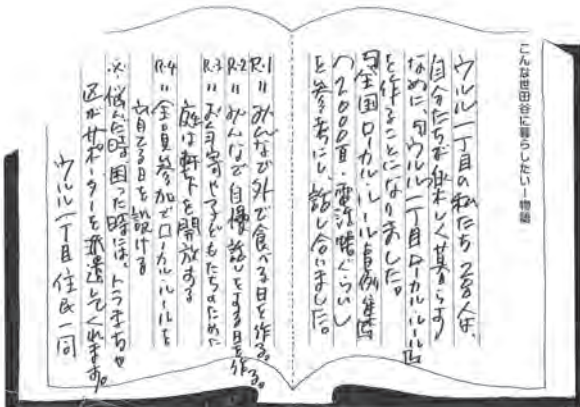 こんな世田谷に暮らしたい！物語
ウルル一丁目の私たち28人は、
自分たちが楽しく暮らす
ために『ウルル一丁目ローカル・ルール』
を作ることになりました。
『全国ローカル・ルール事例集』
（2000頁・電話帳ぐらい）
を参考にし、話し合いました。
R-1＝みんなで外で食べる日を作る。
R-2＝みんなで自慢話しをする日を作る。
R-3＝お年寄や子どもたちのために
庭は軒下を開放する
R-4＝全員参加でローカル・ルールを
育てる日を設ける
※悩んだ時、困った時には、トラまちや
区がサポーターを派遣してくれます。
ウルル一丁目住民一同